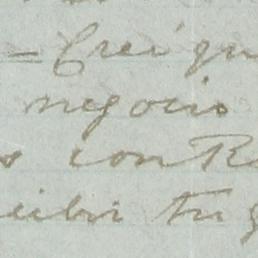 = Crei qu
negocio
s con R
cibi tu g